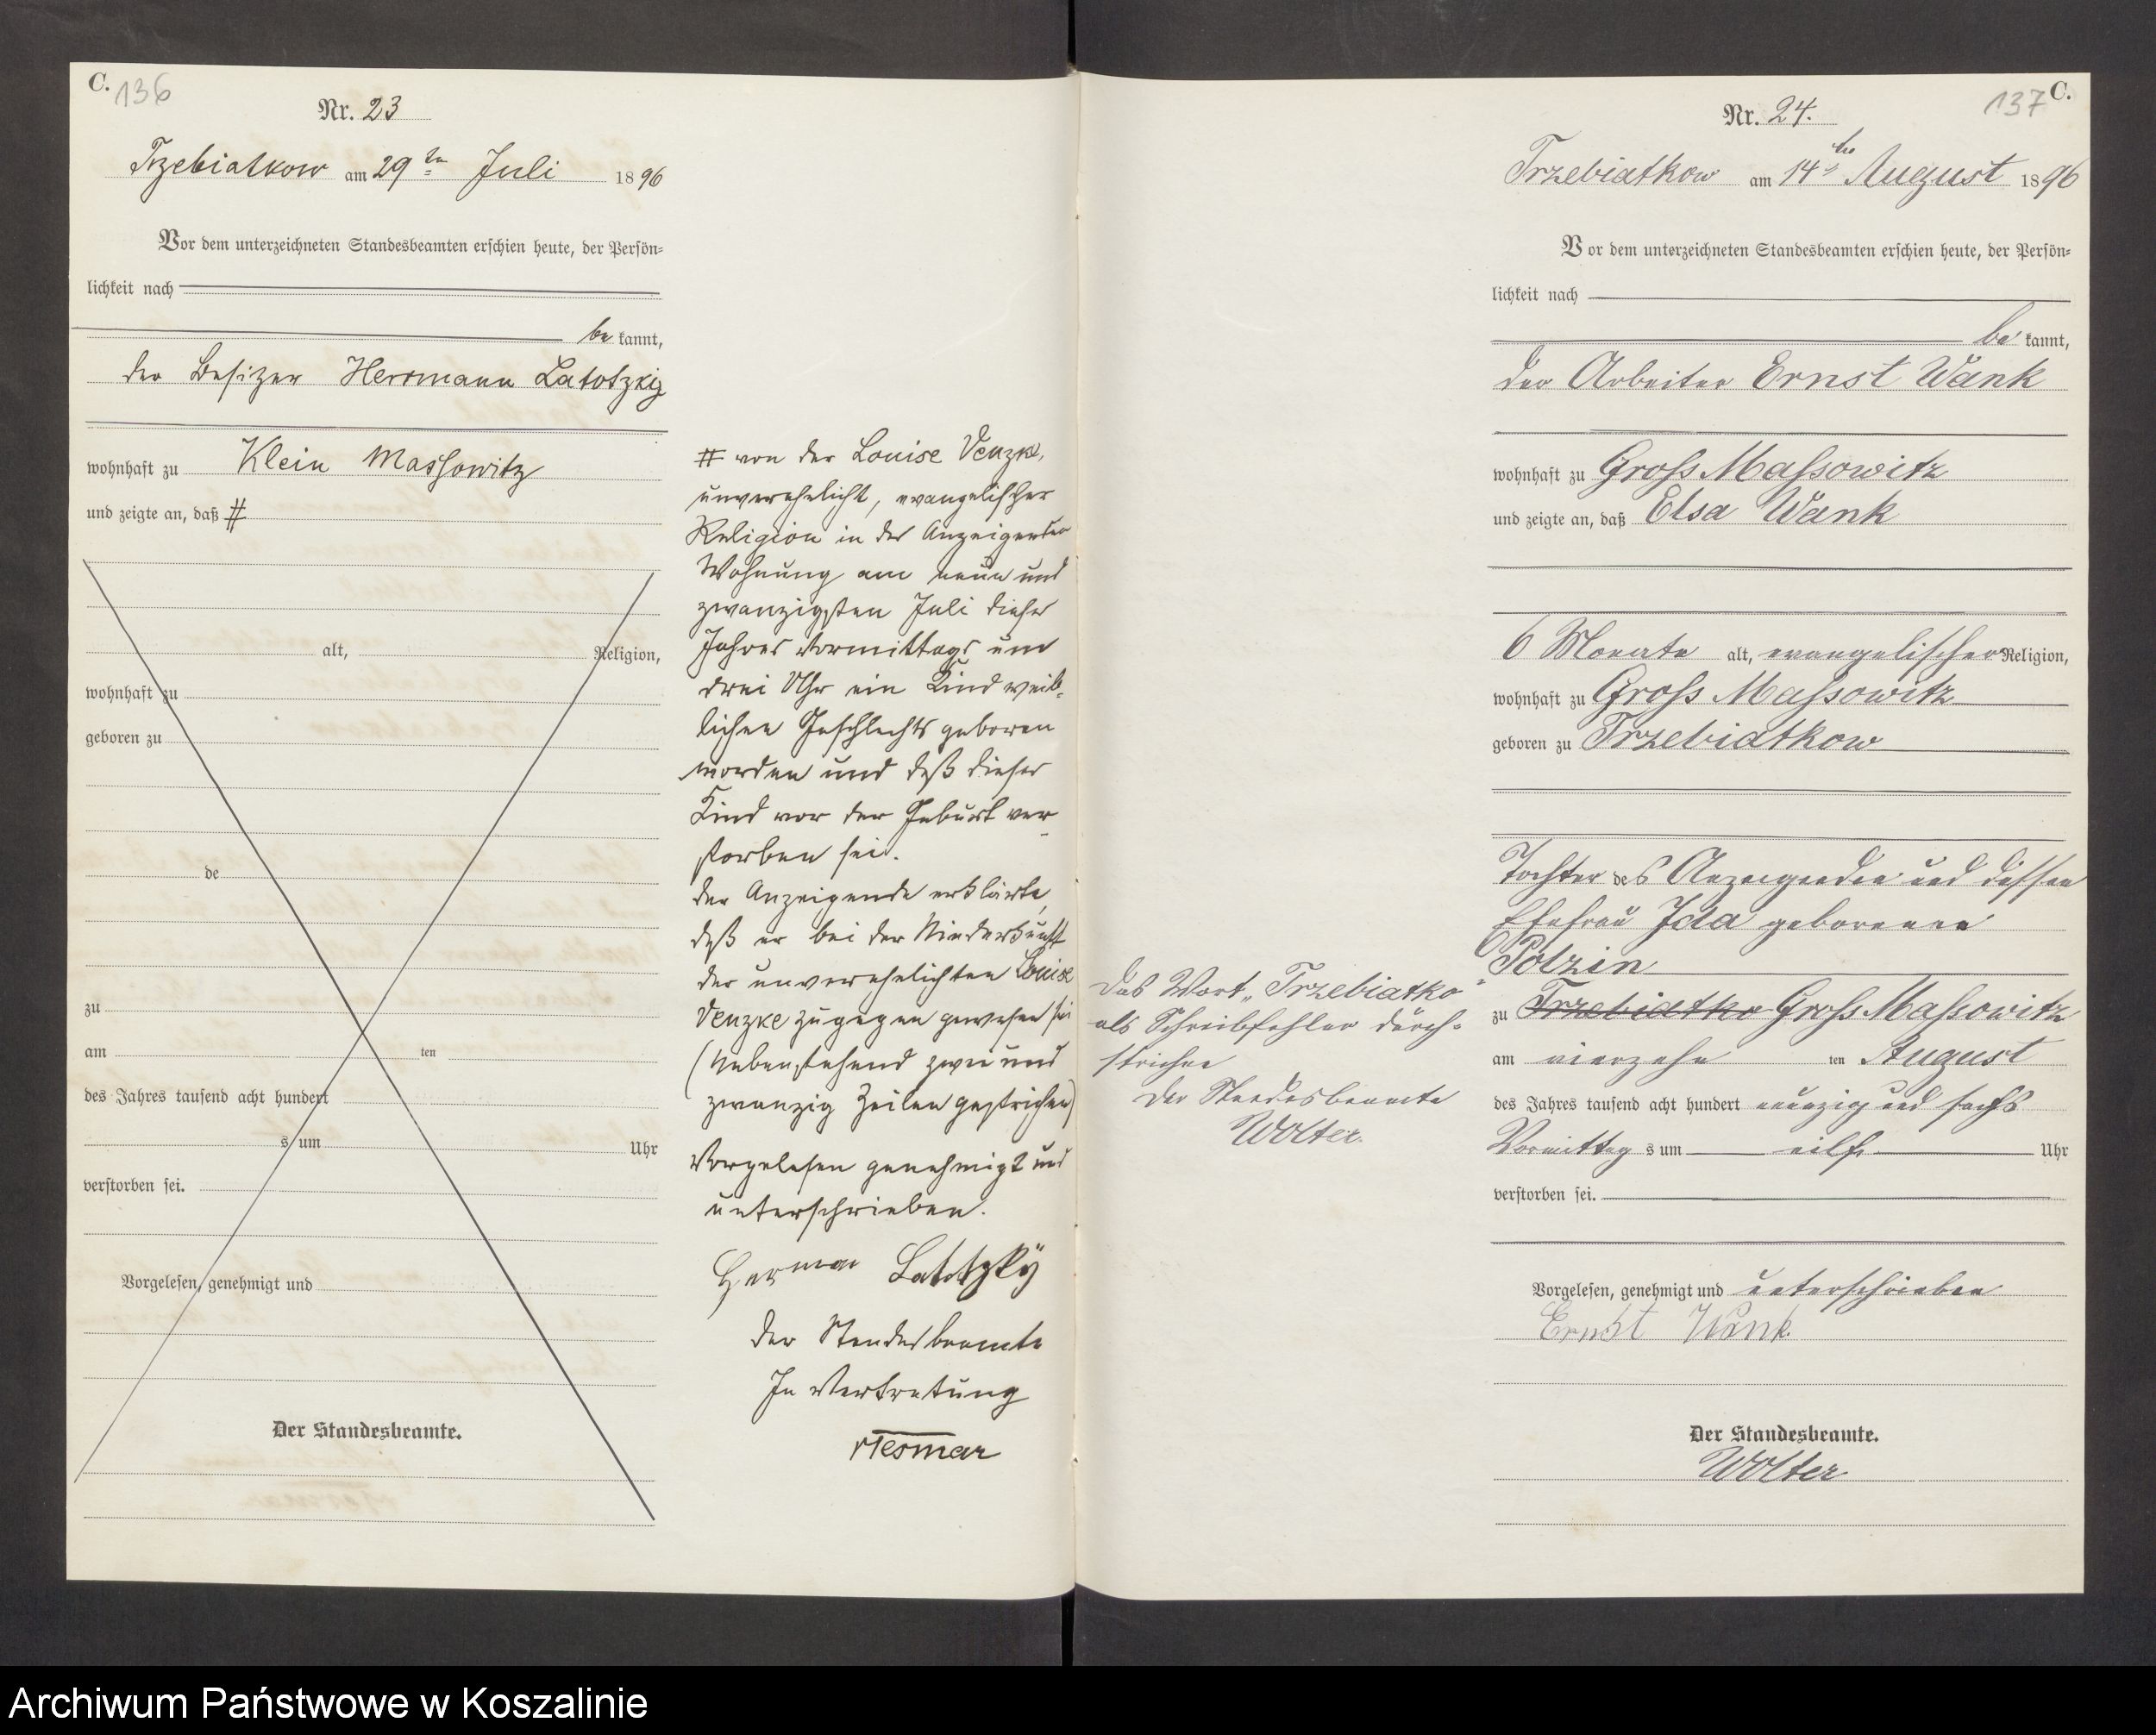 C. 136
Nr. 23
Trzebiatkow am 29ten Juli 1896
Vor dem unterzeichneten Standesbeamten erschien heute, der Persön-
lichkeit nach
be kannt,
der Besitzer Herrmann Latotzky
wohnhaft zu Klein Massowitz
und zeigte an, daß #
alt, Religion,
wohnhaft zu
geboren zu
de
zu
am ten
des Jahres tausend acht hundert
s um Uhr
verstorben sei.
Vorgelesen, genehmigt und
Der Standesbeamte.
# von der Louise Venzke,
unverehelicht, evangelischer
Religion in des Anzeigenden
Wohnung am neun und
zwanzigsten Juli dieses
Jahres Vormittags um
drei Uhr ein Kind weib-
lichen Geschlechts geboren
worden und daß dieses
Kind vor der Geburt ver
storben sei.
der Anzeigende erklärte,
daß er bei der Niederkunft
der unverehelichten Louise
Venzke zugegen gewesen sei
(Nebenstehend zwei und
zwanzig Zeilen gestrichen)
Vorgelesen genehmigt und
unterschrieben.
Herman Latotzky
Der Standesbeamte
In Vertretung
Mesmar
137 C.
Nr. 24.
Trzebiatkow am 14ten August 1896
Vor dem unterzeichneten Standesbeamten erschien heute, der Persön-
lichkeit nach
be kannt,
der Arbeiter Ernst Wank
wohnhaft zu Gross Massowitz
und zeigte an, daß Elsa Wank
6 Monate alt, evangelischer Religion,
wohnhaft zu Gross Massowitz
geboren zu Trzebiatkow
Tochter des Anzeigenden und dessen
Ehefrau Ida geborenen
Polzin
zu Trzebiatko Gross Massowitz
am vierzehn ten August
des Jahres tausend acht hundert neunzig und sechs
Vormittag s um eilf Uhr
verstorben sei.
Vorgelesen, genehmigt und unterschrieben
Ernst Wank.
Der Standesbeamte.
Wolter
Das Wort „Trzebiatko"
als Schreibfehler durch-
strichen
Der Standesbeamte
Wolter.
Archiwum Państwowe w Koszalinie